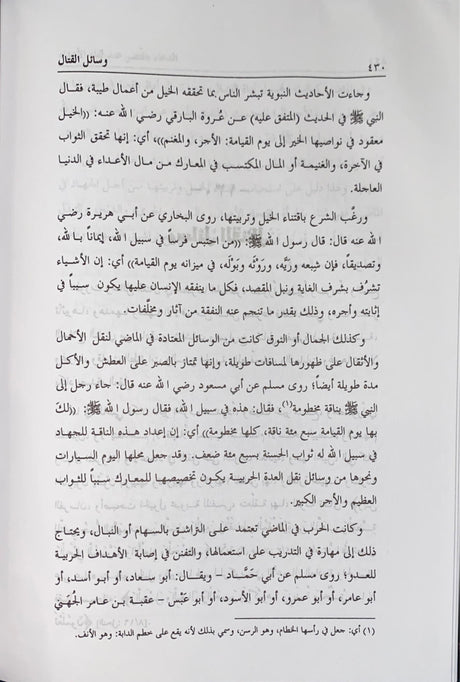 ٤٣٠ وسائل القتال
وجاءت الأحاديث النبوية تبشر الناس بما تحققه الخيل من أعمال طيبة، فقال
النبي ﷺ في الحديث (المتفق عليه) عن عُروة البارقي رضي الله عنه: ((الخيل
معقود في نواصيها الخير إلى يوم القيامة: الأجر، والمغنم))، أي: إنها تحقق الثواب
في الآخرة، والغنيمة أو المال المكتسب في المعارك من مال الأعداء في الدنيا
العاجلة.
ورغَّب الشرع باقتناء الخيل وتربيتها، روى البخاري عن أبي هريرة رضي
الله عنه قال: قال رسول الله ﷺ: ((من احتبس فرساً في سبيل الله، إيماناً بالله،
وتصديقاً، فإن شبعه ورِيَّه، ورَوْثَه وبَوْلَه، في ميزانه يوم القيامة)) أي: إن الأشياء
تشرُف بشرف الغاية ونبل المقصد، فكل ما ينفقه الإنسان عليها يكون سبباً في
إثابته وأجره، وذلك بقدر ما تنجم عنه النفقة من آثار ومخلَّفات.
وكذلك الجمال أو النوق كانت من الوسائل المعتادة في الماضي لنقل الأحمال
والأثقال على ظهورها لمسافات طويلة، وإنها تمتاز بالصبر على العطش والأكل
مدة طويلة أيضاً؛ روى مسلم عن أبي مسعود رضي الله عنه قال: جاء رجل إلى
النبي ﷺ بناقة مخطومة(١)، فقال: هذه في سبيل الله، فقال رسول الله ﷺ: ((لكَ
بها يوم القيامة سبع مئة ناقة، كلها مخطومة)) أي: إن إعداد هذه الناقة للجهاد
في سبيل الله له ثواب الحسنة بسبع مئة ضعف. وقد جعل محلها اليوم السيارات
ونحوها من وسائل نقل العدة الحربية يكون تخصيصها للمعارك سبباً للثواب
العظيم والأجر الكبير.
وكانت الحرب في الماضي تعتمد على التراشق بالسهام أو النبال، ويحتاج
ذلك إلى مهارة في التدريب على استعمالها، والتفنن في إصابة الأهداف الحربية
للعدو؛ روى مسلم عن أبي حَمَّاد - ويقال: أبو سعاد، أو أبو أسد، أو
أبو عامر، أو أبو عمرو، أو أبو الأسود، أو أبو عَبْس - عقبة بن عامر الجُهَني
(١) أي: جعل في رأسها الخطام، وهو الرسن، وسمي بذلك لأنه يقع على خطم الدابة: وهو الأنف.